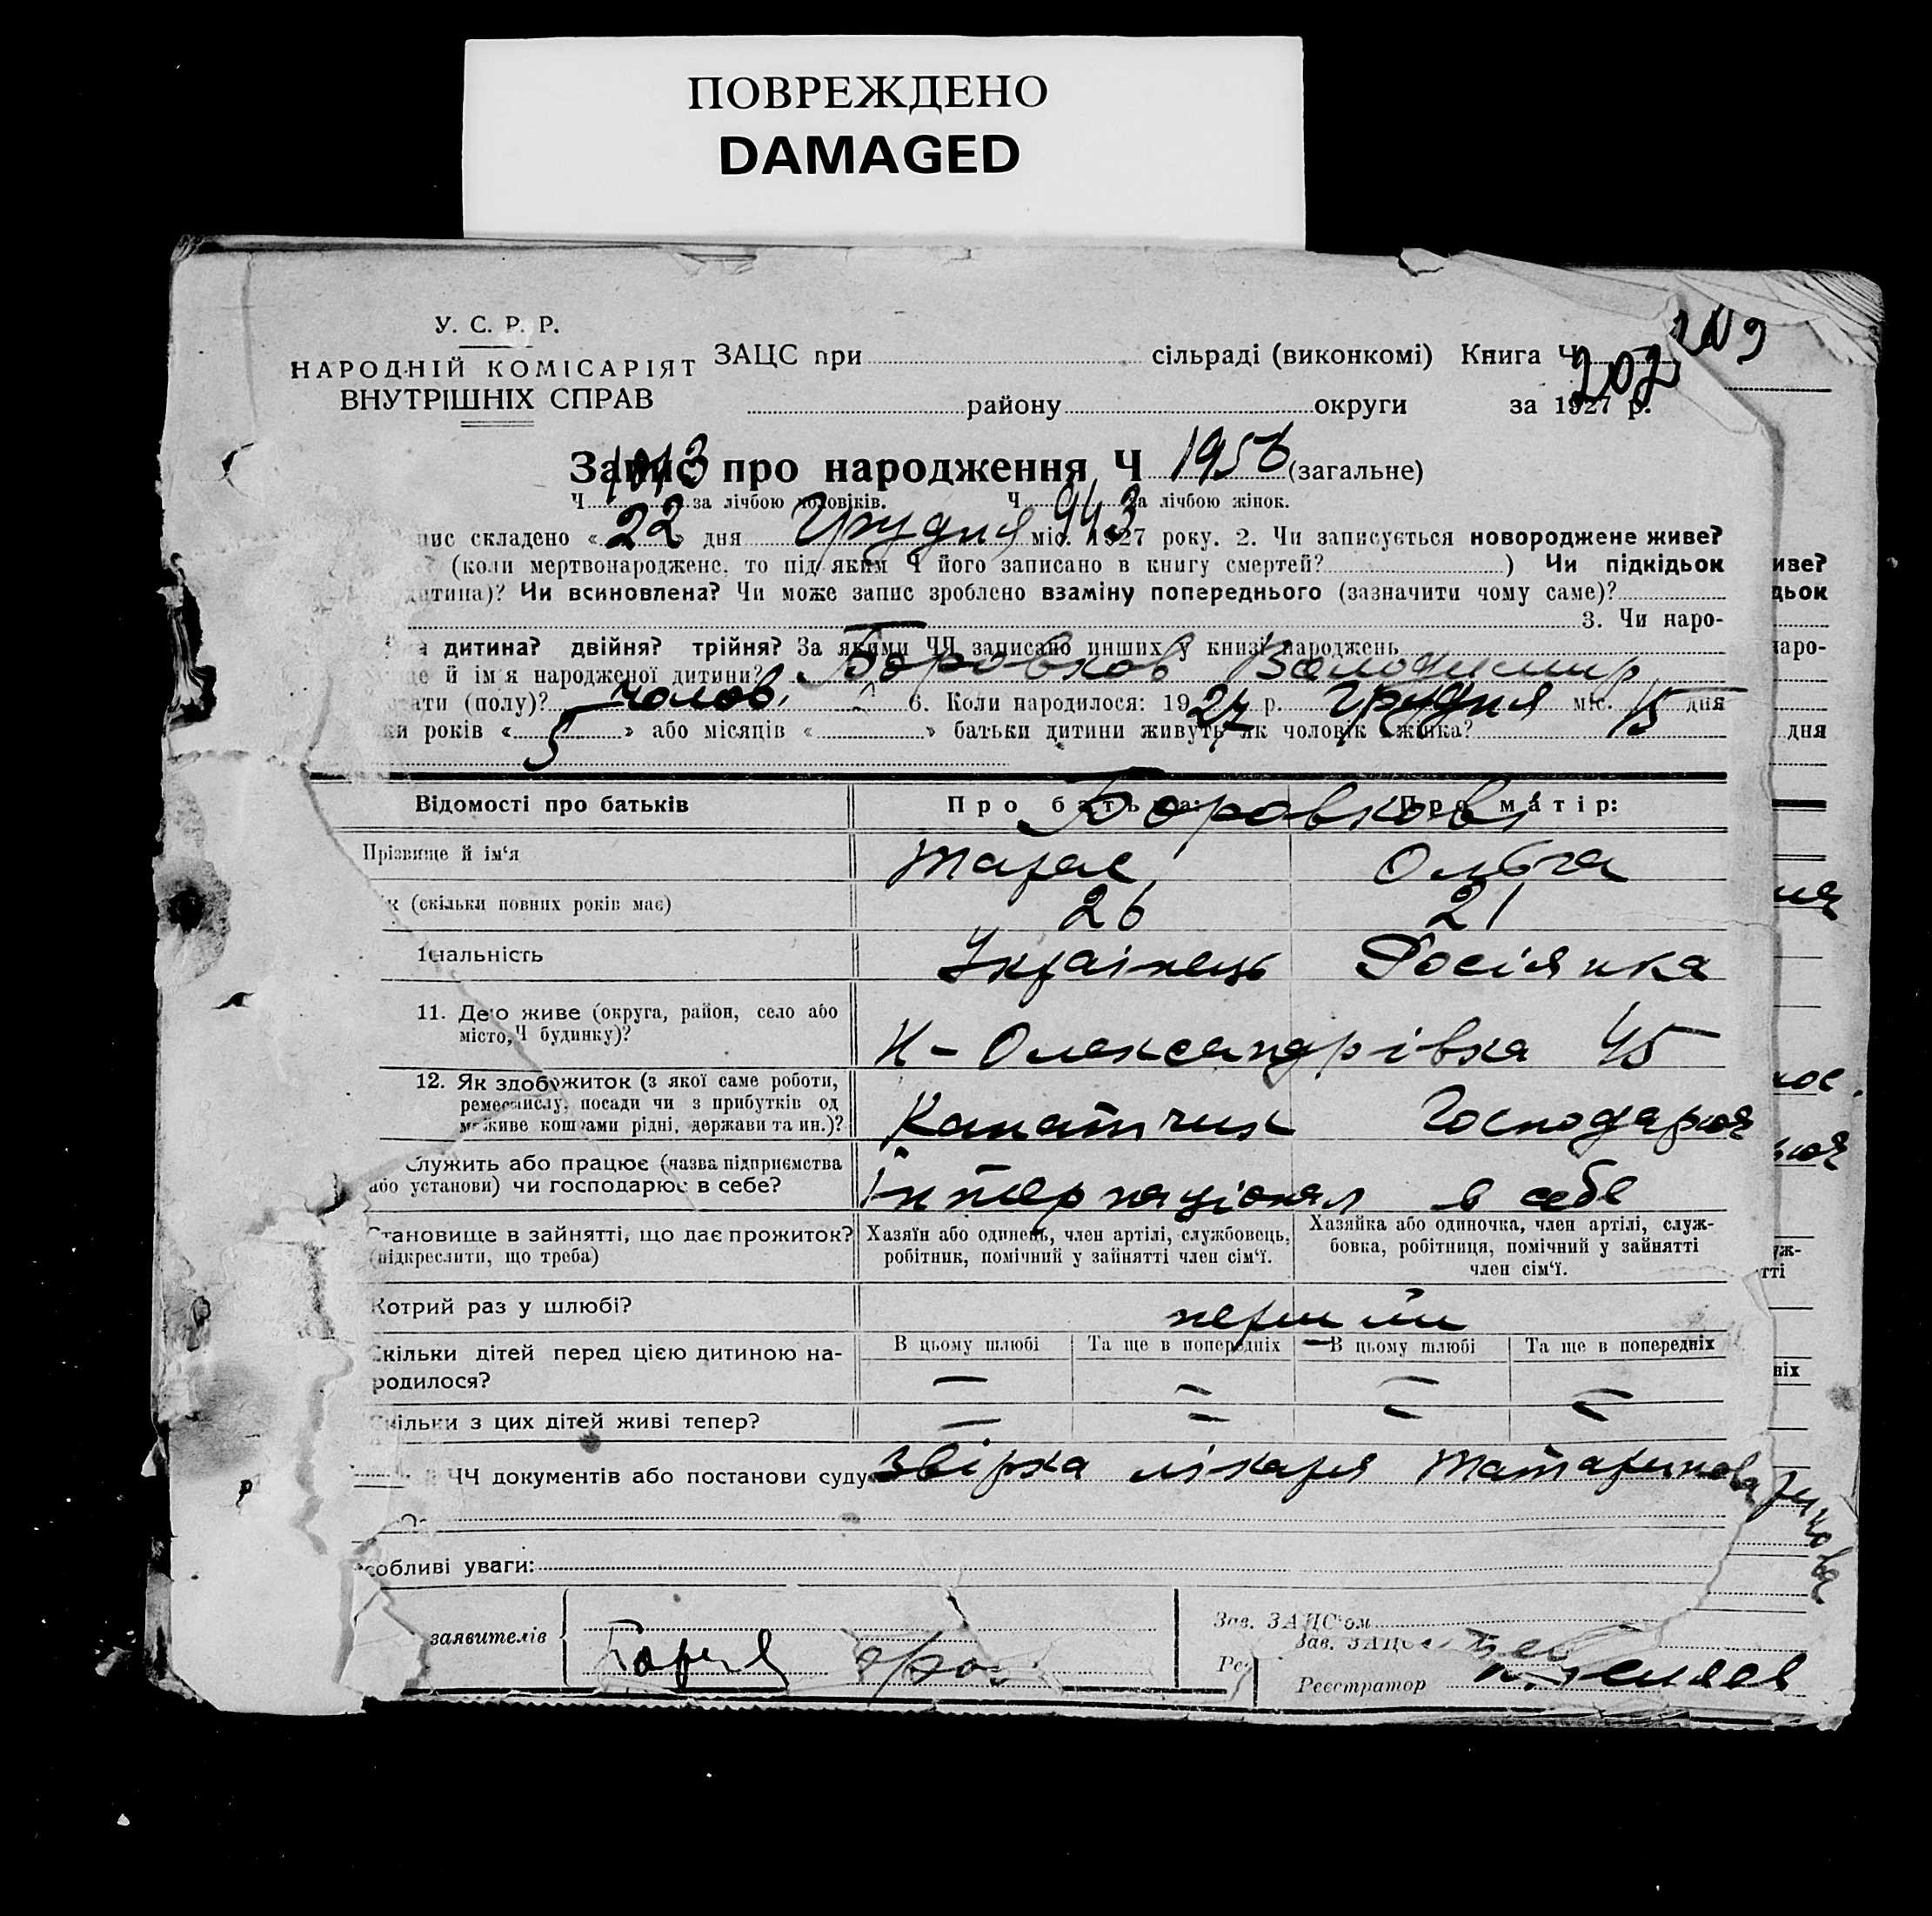 ПОВРЕЖДЕНО
DAMAGED
У. С. Р. Р.
НАРОДНІЙ КОМІСАРІЯТ
ВНУТРІШНІХ СПРАВ
ЗАЦС при сільраді (виконкомі) Книга Ч 202
району округи за 1927 р.
Запис про народження Ч 1956 (загальне)
Ч 1013 за лічбою чоловіків. Ч 943 за лічбою жінок.
пис складено « 22 » дня Грудня міс. 1927 року. 2. Чи записується новороджене живе?
(коли мертвонароджене, то під яким Ч його записано в книгу смертей? ) Чи підкідьок
дитина)? Чи всиновлена? Чи може запис зроблено взаміну попереднього (зазначити чому саме)?
3. Чи наро-
дитина? двійня? трійня? За якими ЧЧ записано инших у книзі народжень
й ім'я народженої дитини? Боровков Володимир
ати (полу)? чолов. 6. Коли народилося: 1927 р. Грудня міс. 15 дня
ки років « 5 » або місяців « » батьки дитини живуть як чоловік і жінка?
Відомості про батьків Про батька: Про матір:
Боровкови
Прізвище й ім‘я Тарас Ольга
к (скільки повних років має) 26 21
нальність Українець Росіянка
11. Де живе (округа, район, село або
місто, Ч будинку)? Н-Олександрівка 45
12. Як здобу житок (з якої саме роботи,
ремесла, посади чи з прибутків од
живе коштами рідні, держави та ин.)? Канатчик Господарює
служить або працює (назва підприємства
або установи) чи господарює в себе? Інтернаціонал в себе
Становище в зайнятті, що дає прожиток?
(підкреслити, що треба)
Хазяїн або одинець, член артілі, службовець,
робітник, помічний у зайнятті член сім‘ї.
Хазяйка або одиночка, член артілі, служ-
бовка, робітниця, помічний у зайнятті
член сім‘ї.
Котрий раз у шлюбі? перший
Скільки дітей перед цією дитиною на-
родилося?
В цьому шлюбі Та ще в попередніх В цьому шлюбі Та ще в попередніх
— — — —
Скільки з цих дітей живі тепер? — — — —
ЧЧ документів або постанови суду Звірка лікаря Татаринова
собливі уваги:
заявителів
Зав. ЗАЦС‘ом
Зав. ЗАЦС
Реєстратор